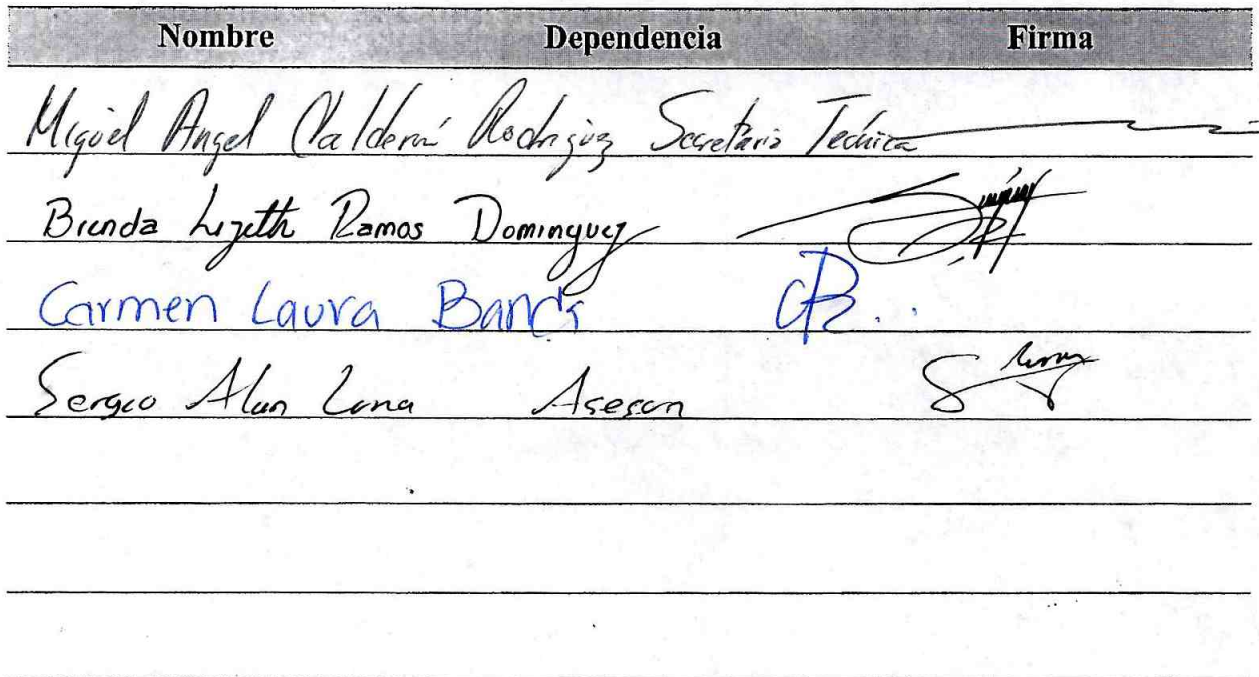 Nombre Dependencia Firma
Miguel Angel Calderón Rodriguez Secretaria Tecnica
Brenda Lizeth Ramos Dominguez
Carmen Laura
Sergio Alan Asesor